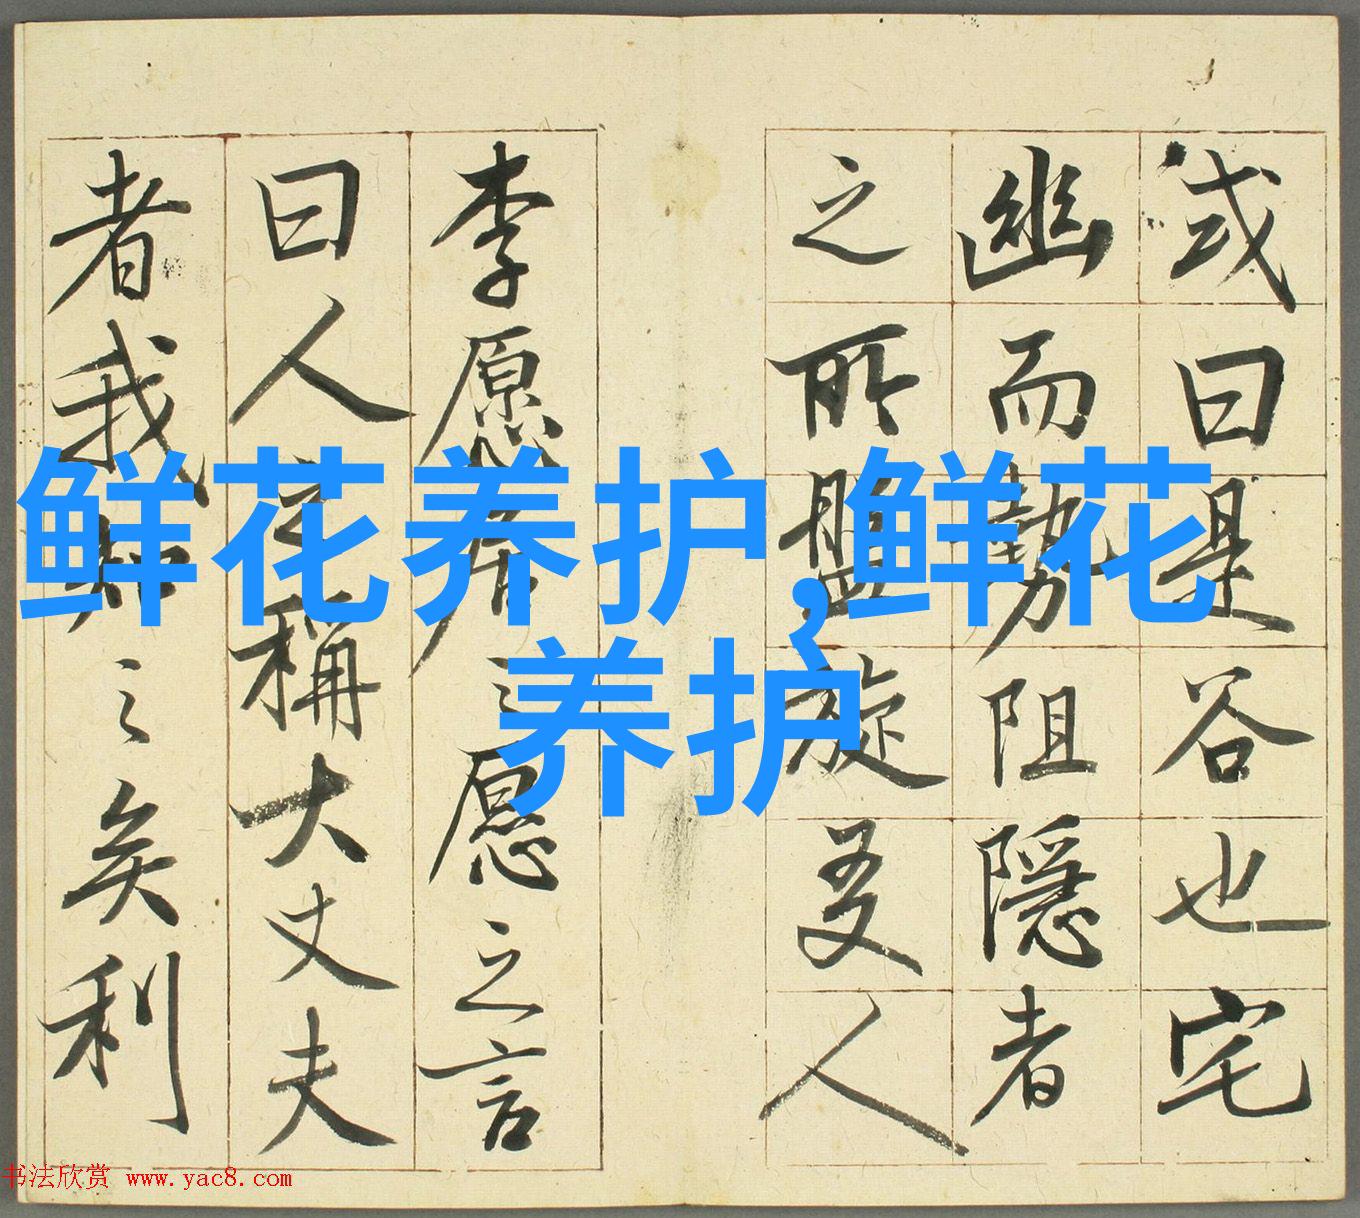 或曰是谷也宅
幽而勢阻隱者
之所盤旋友人
李愿居之愿之言
曰人之稱大丈夫
者我知之矣利
鲜花养护,鲜花
养护
书法欣赏 www.yac8.com